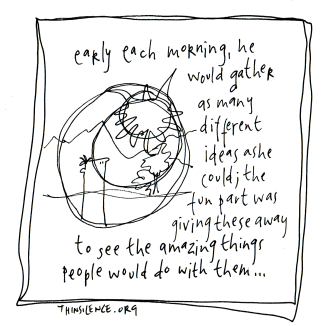 early each morning, he
would gather
as many
different
ideas as he
could; the
fun part was
giving these away
to see the amazing things
people would do with them...
THINSILENCE.ORG